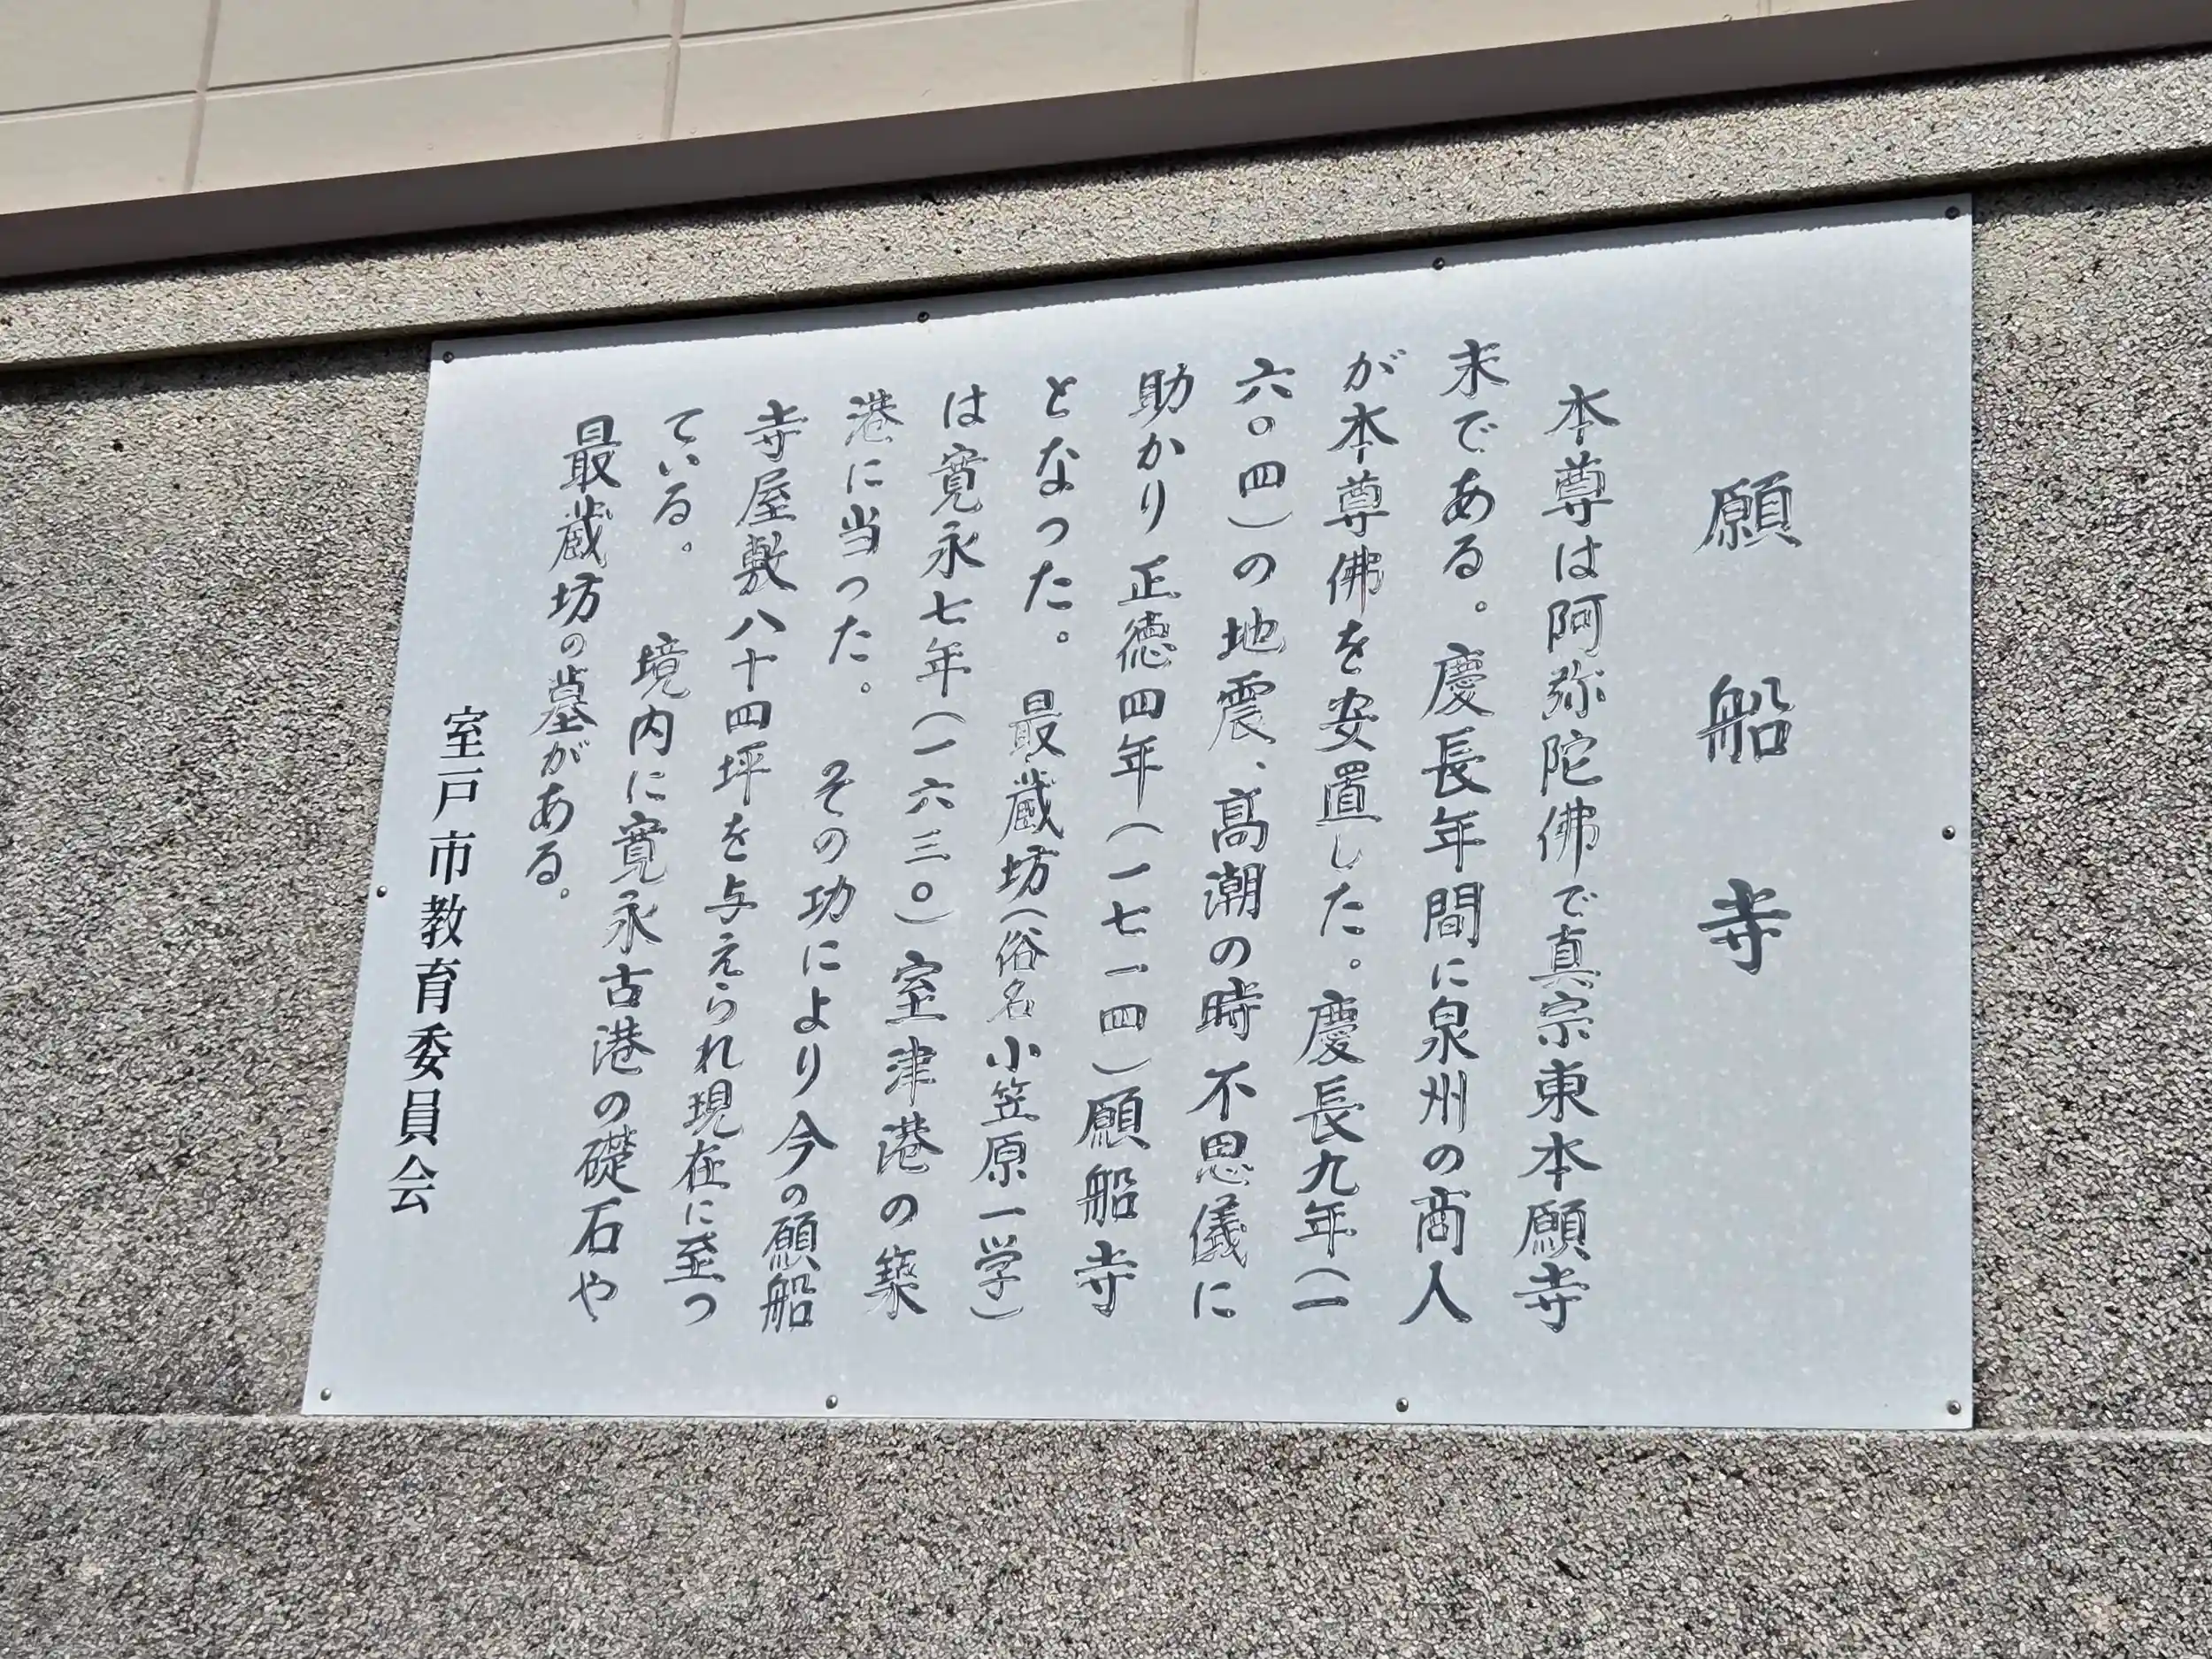 願船寺
本尊は阿弥陀佛で真宗東本願寺
末である。慶長年間に泉州の商人
が本尊佛を安置した。慶長九年(一
六〇四)の地震、高潮の時不思儀に
助かり正徳四年(一七一四)願船寺
となった。最蔵坊(俗名小笠原一学)
は寛永七年(一六三〇)室津港の築
港に当った。その功により今の願船
寺屋敷八十四坪を与えられ現在に至っ
ている。境内に寛永古港の礎石や
最蔵坊の墓がある。
室戸市教育委員会